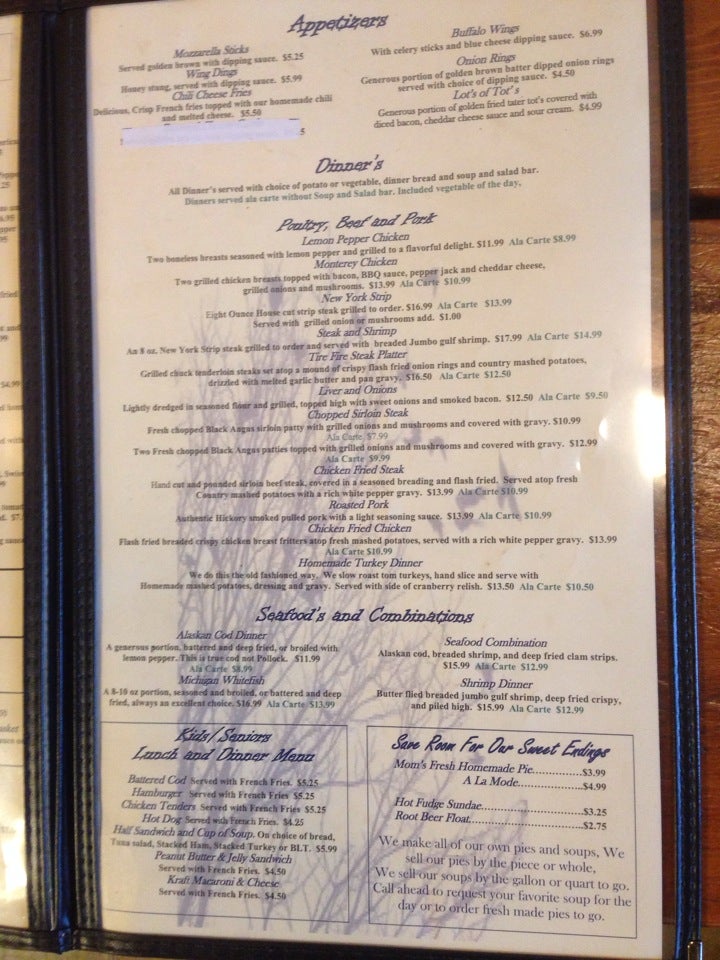 Appetizers
Mozzarella Sticks
Served golden brown with dipping sauce. $5.25
Wing Dings
Honey stung, served with dipping sauce. $5.99
Chili Cheese Fries
Delicious, Crisp French fries topped with our homemade chili
and melted cheese. $5.50
5
Buffalo Wings
With celery sticks and blue cheese dipping sauce. $6.99
Onion Rings
Generous portion of golden brown batter dipped onion rings
served with choice of dipping sauce. $4.50
Lot's of Tot's
Generous portion of golden fried tater tot's covered with
diced bacon, cheddar cheese sauce and sour cream. $4.99
Dinner's
All Dinner's served with choice of potato or vegetable, dinner bread and soup and salad bar.
Dinners served ala carte without Soup and Salad bar. Included vegetable of the day.
Poultry, Beef and Pork
Lemon Pepper Chicken
Two boneless breasts seasoned with lemon pepper and grilled to a flavorful delight. $11.99 Ala Carte $8.99
Monterey Chicken
Two grilled chicken breasts topped with bacon, BBQ sauce, pepper jack and cheddar cheese,
grilled onions and mushrooms. $13.99 Ala Carte $10.99
New York Strip
Eight Ounce House cut strip steak grilled to order. $16.99 Ala Carte $13.99
Served with grilled onion or mushrooms add. $1.00
Steak and Shrimp
An 8 oz. New York Strip steak grilled to order and served with breaded Jumbo gulf shrimp. $17.99 Ala Carte $14.99
Tire Fire Steak Platter
Grilled chuck tenderloin steaks set atop a mound of crispy flash fried onion rings and country mashed potatoes,
drizzled with melted garlic butter and pan gravy. $16.50 Ala Carte $12.50
Liver and Onions
Lightly dredged in seasoned flour and grilled, topped high with sweet onions and smoked bacon. $12.50 Ala Carte $9.50
Chopped Sirloin Steak
Fresh chopped Black Angus sirloin patty with grilled onions and mushrooms and covered with gravy. $10.99
Ala Carte $7.99
Two Fresh chopped Black Angus patties topped with grilled onions and mushrooms and covered with gravy. $12.99
Ala Carte $9.99
Chicken Fried Steak
Hand cut and pounded sirloin beef steak, covered in a seasoned breading and flash fried. Served atop fresh
Country mashed potatoes with a rich white pepper gravy. $13.99 Ala Carte $10.99
Roasted Pork
Authentic Hickory smoked pulled pork with a light seasoning sauce. $13.99 Ala Carte $10.99
Chicken Fried Chicken
Flash fried breaded crispy chicken breast fritters atop fresh mashed potatoes, served with a rich pepper gravy. $13.99
Ala Carte $10.99
Homemade Turkey Dinner
We do this the old fashioned way. We slow roast tom turkeys, hand slice and serve with
Homemade mashed potatoes, dressing and gravy. Served with side of cranberry relish. $13.50 Ala Carte $10.50
Seafood's and Combinations
Alaskan Cod Dinner
A generous portion, battered and deep fried, or broiled with
lemon pepper. This is true cod not Pollock. $11.99
Ala Carte $8.99
Michigan Whitefish
A 8-10 oz portion, seasoned and broiled, or battered and deep
fried, always an excellent choice. $16.99 Ala Carte $13.99
Seafood Combination
Alaskan cod, breaded shrimp, and deep fried clam strips.
$15.99 Ala Carte $12.99
Shrimp Dinner
Butter flied breaded jumbo gulf shrimp, deep fried crispy,
and piled high. $15.99 Ala Carte $12.99
Kids/Seniors
Lunch and Dinner Menu
Battered Cod Served with French Fries. $5.25
Hamburger Served with French Fries. $5.25
Chicken Tenders Served with French Fries. $5.25
Hot Dog Served with French Fries. $4.25
Half Sandwich and Cup of Soup. On choice of bread,
Tuna salad, Stacked Ham, Stacked Turkey or BLT. $5.99
Peanut Butter & Jelly Sandwich
Served with French Fries. $4.50
Kraft Macaroni & Cheese
Served with French Fries. $4.50
Save Room For Our Sweet Endings
Mom's Fresh Homemade Pie..............$3.99
A La Mode...............$4.99
Hot Fudge Sundae.......................$3.25
Root Beer Float.........................$2.75
We make all of our own pies and soups, We
sell our pies by the piece or whole,
We sell our soups by the gallon or quart to go.
Call ahead to request your favorite soup for the
day or to order fresh made pies to go.